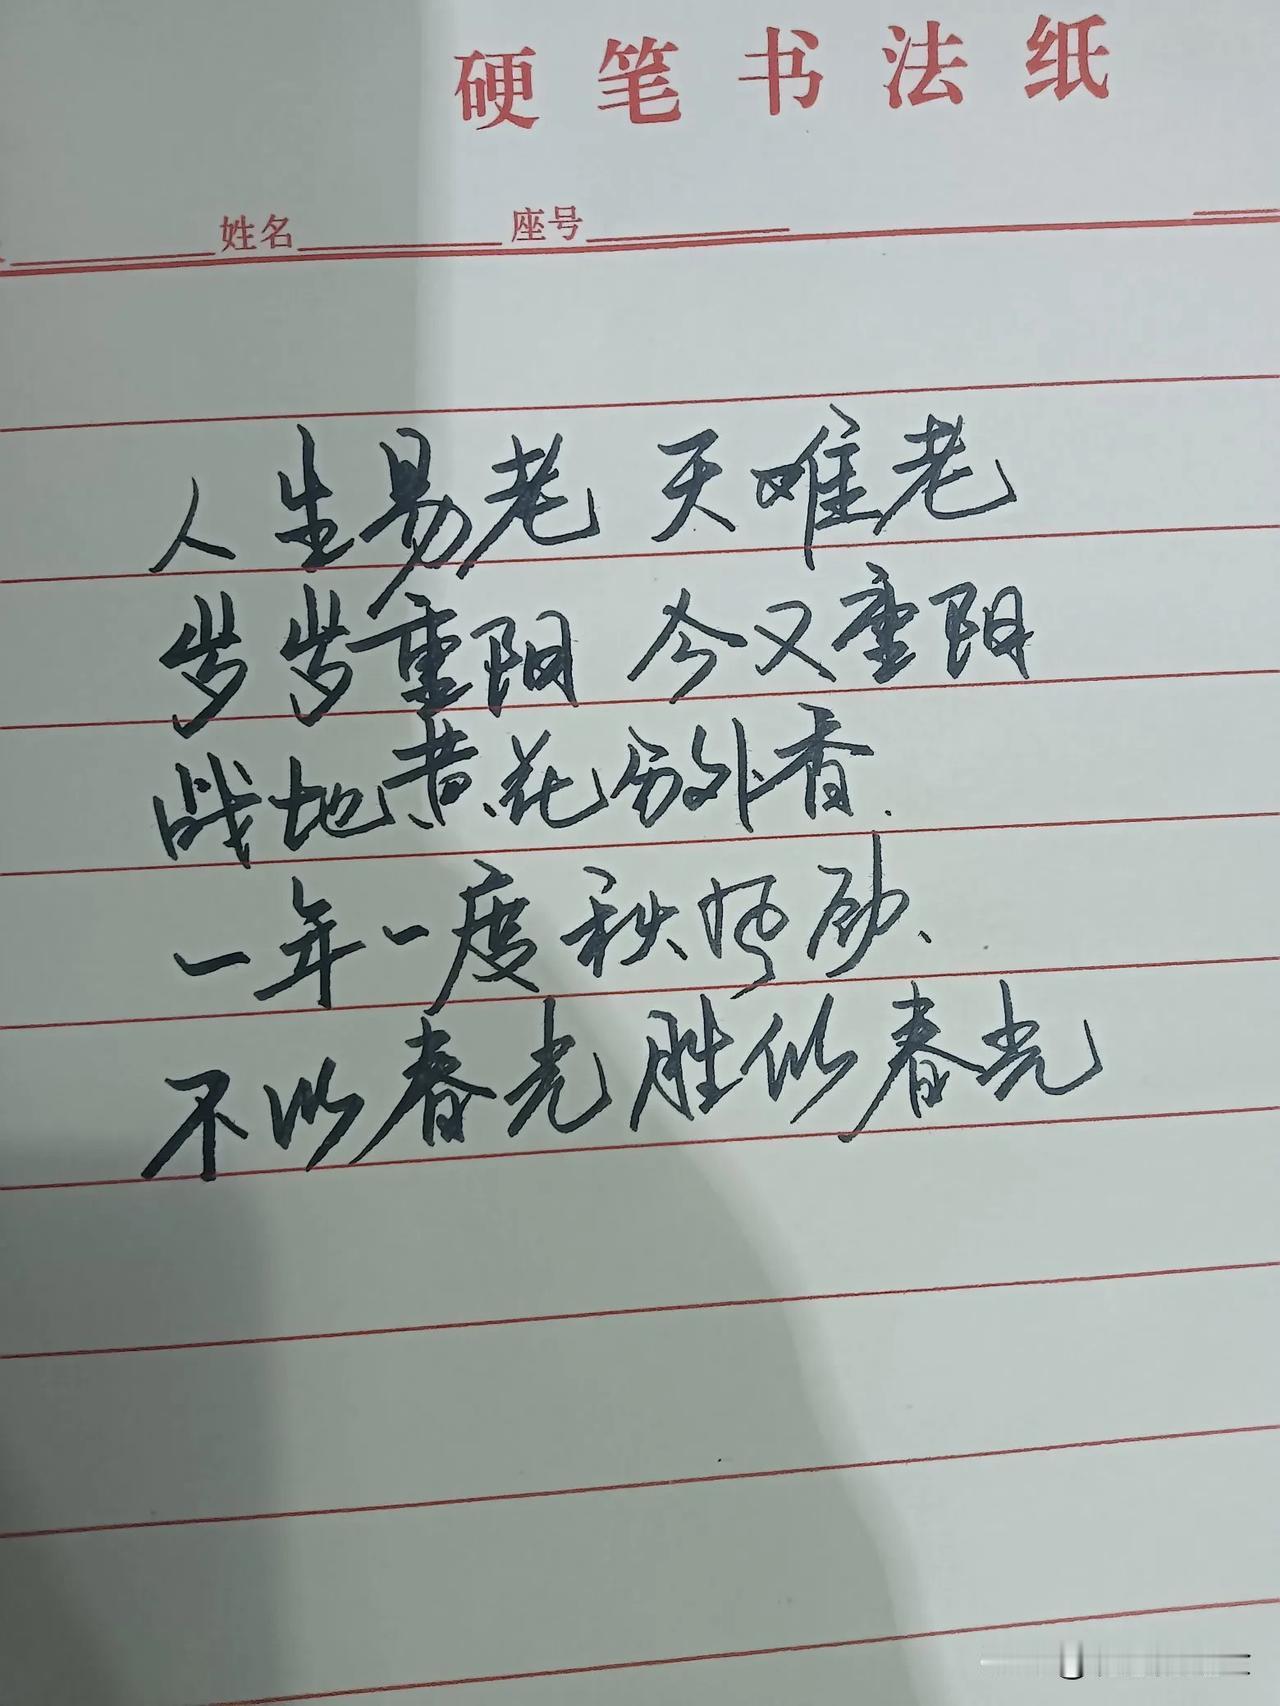 硬笔书法纸
姓名 座号
人生易老 天难老
岁岁重阳 今又重阳
战地黄花分外香.
一年一度秋风劲、
不以春光 胜似春光